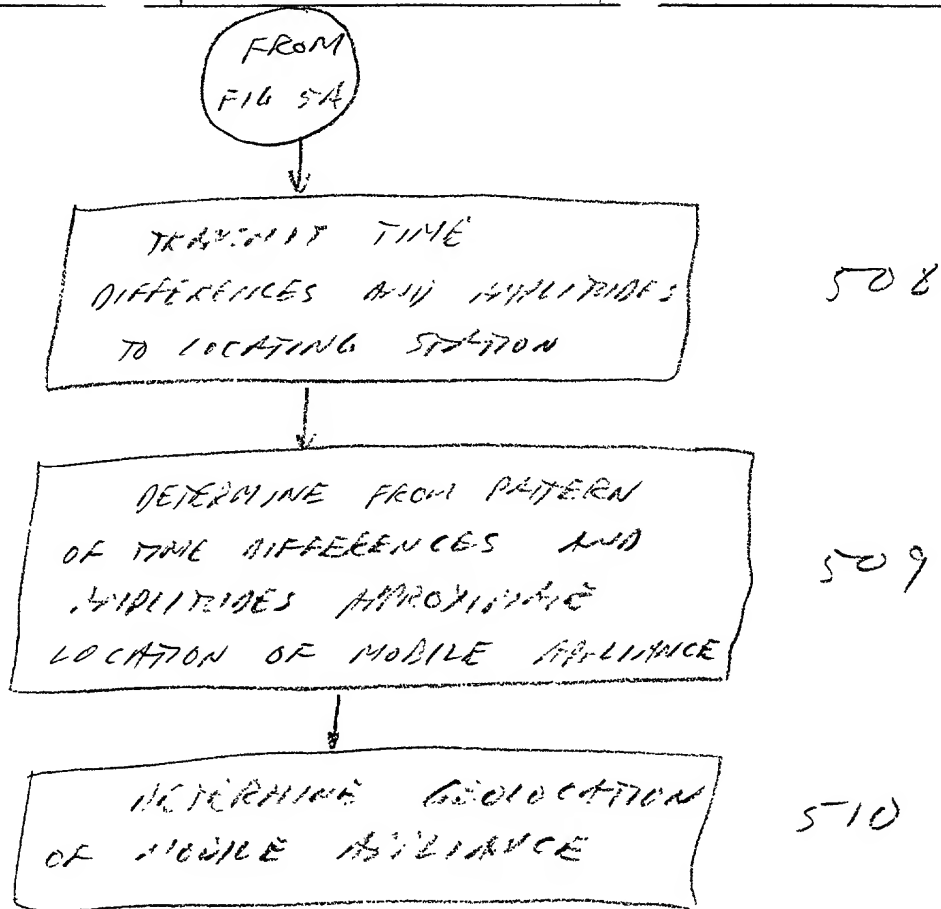 FROM
FIG 5A
TRANSMIT TIME
DIFFERENCES AND AMPLITUDES
TO LOCATING STATION
508
DETERMINE FROM PATTERN
OF TIME DIFFERENCES AND
AMPLITUDES APPROXIMATE
LOCATION OF MOBILE APPLIANCE
509
DETERMINE GEOLOCATION
OF MOBILE APPLIANCE
510